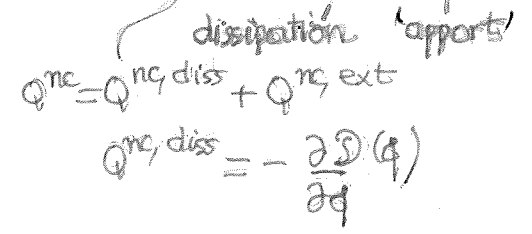 dissipation 'apports'
Q^{nc} = Q^{nc, diss} + Q^{nc, ext}
Q^{nc, diss} = - ∂D(q)/∂q